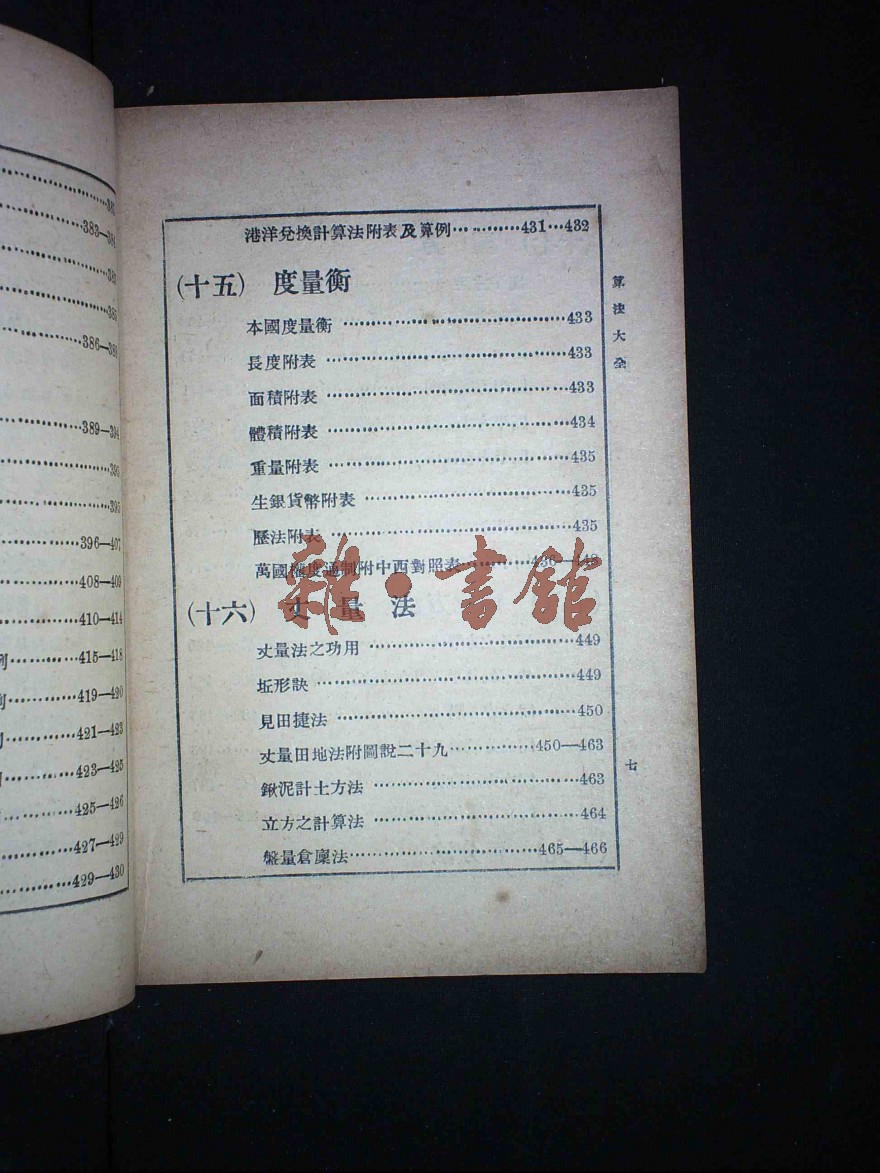 港洋兌換計算法附表及算例…………431…432
(十五) 度量衡
本國度量衡……………………433
長度附表……………………433
面積附表……………………433
體積附表……………………434
重量附表……………………435
生銀貨幣附表……………………435
歷法附表……………………435
萬國權度通制附中西對照表…………436—448
(十六) 丈量法
丈量法之功用……………………449
坵形訣……………………449
見田捷法……………………450
丈量田地法附圖說二十九…………450—463
鍬泥計土方法……………………463
立方之計算法……………………464
盤量倉廩法……………………465—466
算法大全
七
雜·書館
383—384
385
386—388
389—394
395
395
396—407
408—409
410—414
例…………415—418
例…………419—420
421—423
423—425
425—426
427—429
429—430